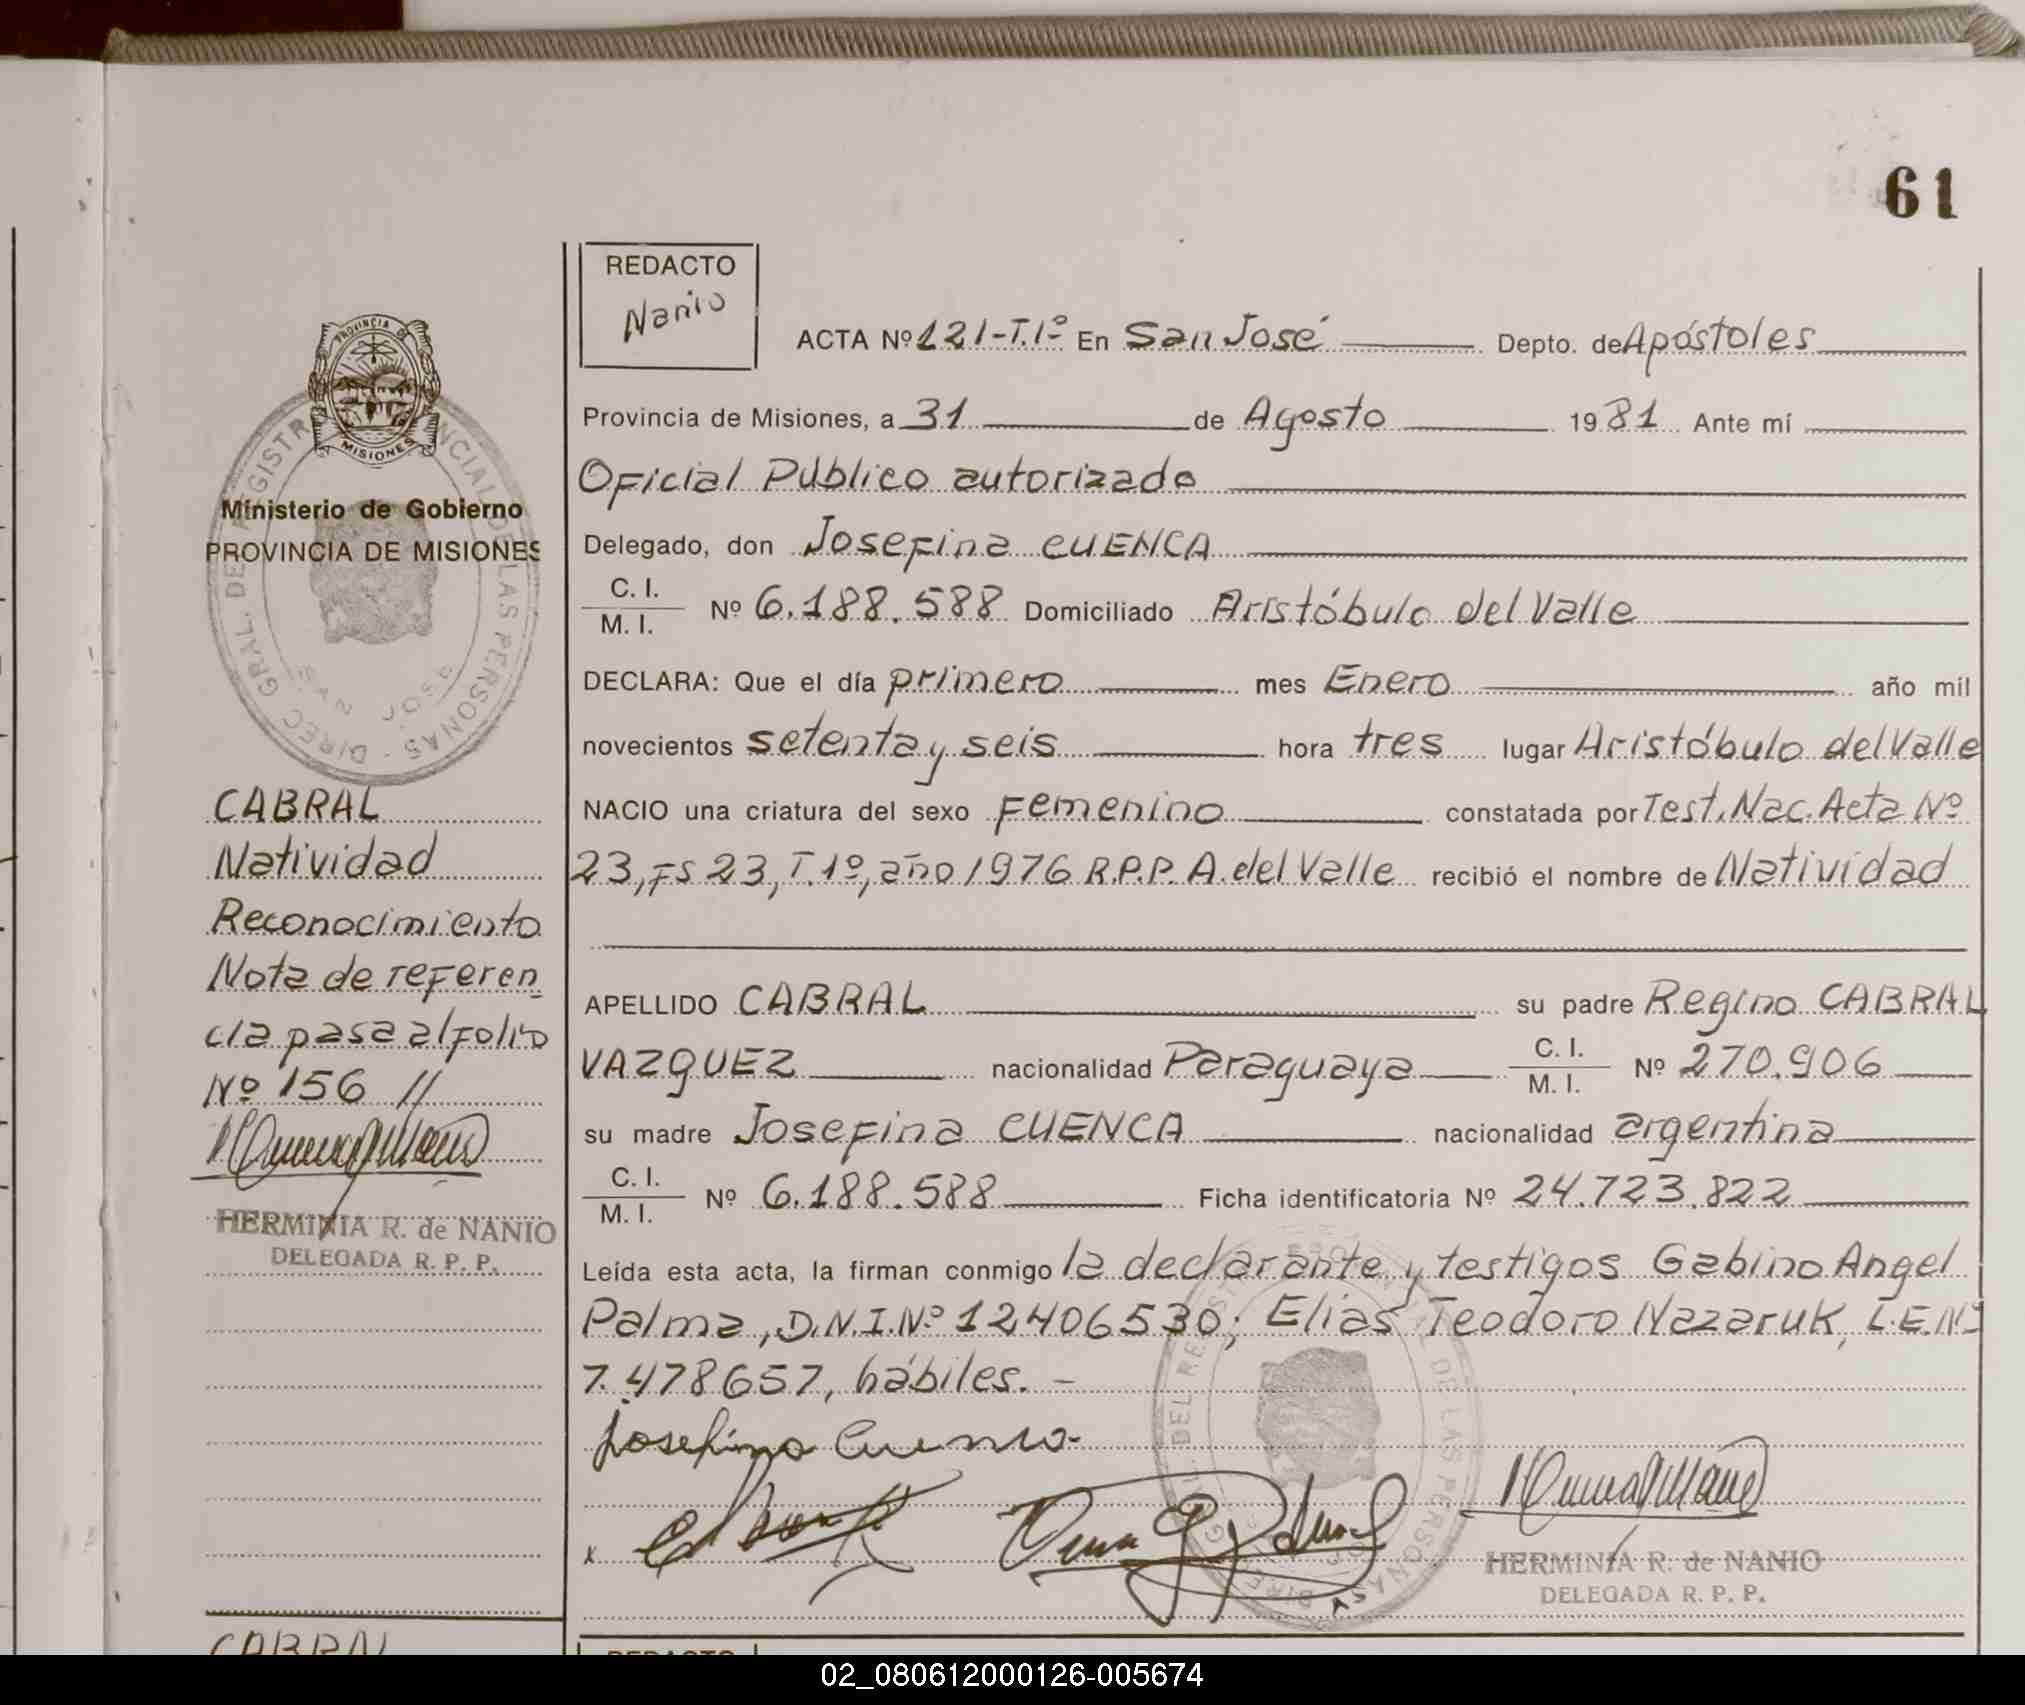 61
REDACTO
Nanio
ACTA Nº 121-T.1º En San José Depto. de Apóstoles
Provincia de Misiones, a 31 de Agosto 1981 Ante mí
Oficial Público autorizado
Delegado, don Josefina CUENCA
C. I.
M. I. Nº 6.188.588 Domiciliado Aristóbulo del Valle
DECLARA: Que el día primero mes Enero año mil
novecientos setenta y seis hora tres lugar Aristóbulo del Valle
NACIO una criatura del sexo Femenino constatada por Test. Nac. Acta Nº
23, Fs 23, T.1º, año 1976 R.P.P. A. del Valle recibió el nombre de Natividad
APELLIDO CABRAL su padre Regino CABRAL
VAZQUEZ nacionalidad Paraguaya C. I. M. I. Nº 270.906
su madre Josefina CUENCA nacionalidad argentina
C. I.
M. I. Nº 6.188.588 Ficha identificatoria Nº 24.723.822
Leída esta acta, la firman conmigo la declarante y testigos Gabino Angel
Palma, D.N.I.Nº 12406530; Elías Teodoro Nazaruk, L.E.Nº
7.478657, hábiles. -
Josefina Cuenca
HERMINIA R. de NANIO
DELEGADA R. P. P.
PROVINCIA DE
MISIONES
Ministerio de Gobierno
PROVINCIA DE MISIONES
DIREC. GRAL. DEL REGISTRO PROVINCIAL DE LAS PERSONAS
SAN JOSE
CABRAL
Natividad
Reconocimiento
Nota de referen
cia pasa al folio
Nº 156 //
HERMINIA R. de NANIO
DELEGADA R. P. P.
CABRAL
REDACTO
02_080612000126-005674